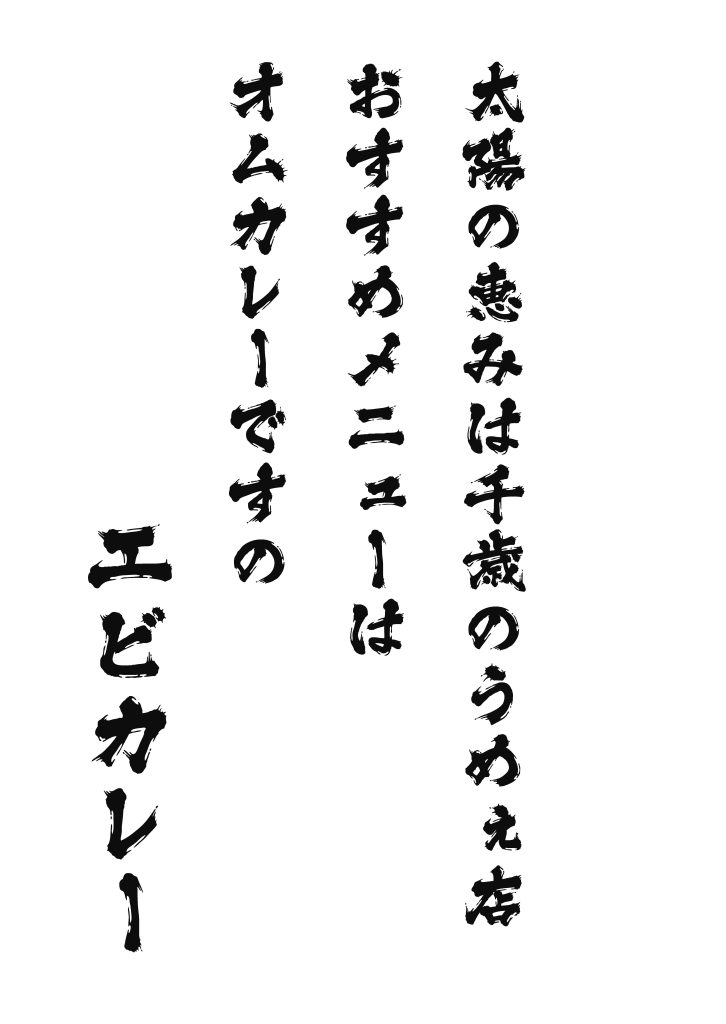 太陽の恵みは千歳のうめぇ店
おすすめメニューは
オムカレーですの
エビカレー